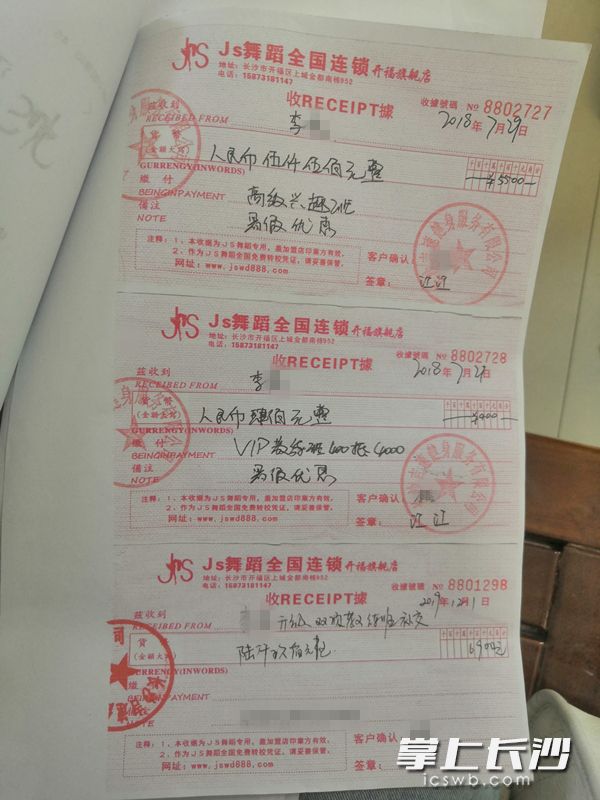 Js舞蹈全国连锁 开福旗舰店
地址：长沙市开福区上城金都南栋952
电话：15873181147
收RECEIPT據
收據號碼 № 8802727
2018年7月29日
茲收到
RECEIBED FROM 李
貨幣
(金額大寫) 人民币伍仟伍佰元整
GURRENGY(INWORDS) ¥5500
繳付
BEINGINPAYMENT 高级兴趣班
備注
NOTE 暑假优惠
注释：1、本收据为JS舞蹈专用，盖加盟店印章方有效。
2、作为JS舞蹈全国免费转校凭证，请妥善保管。
网址：www.jswd888.com
客户确认
签章： 江江
健身服务有限公司
Js舞蹈全国连锁 开福旗舰店
地址：长沙市开福区上城金都南栋952
电话：15873181147
收RECEIPT據
收據號碼 № 8802728
2018年7月29日
茲收到
RECEIBED FROM 李
貨幣
(金額大寫) 人民币肆佰元整
GURRENGY(INWORDS) ¥400
繳付
BEINGINPAYMENT VIP教练班400抵4000
備注
NOTE 暑假优惠
注释：1、本收据为JS舞蹈专用，盖加盟店印章方有效。
2、作为JS舞蹈全国免费转校凭证，请妥善保管。
网址：www.jswd888.com
客户确认
签章： 江江
健身服务有限公司
Js舞蹈全国连锁 开福旗舰店
地址：长沙市开福区上城金都南栋952
电话：15873181147
收RECEIPT據
收據號碼 № 8801298
2019年12月1日
茲收到
RECEIBED FROM
貨幣
(金額大寫)
GURRENGY(INWORDS)
繳付
BEINGINPAYMENT
備注
NOTE
注释：1、本收据为JS舞蹈专用，盖加盟店印章方有效。
2、作为JS舞蹈全国免费转校凭证，请妥善保管。
网址：www.jswd888.com
客户确认
签章：
掌上长沙
icswb.com